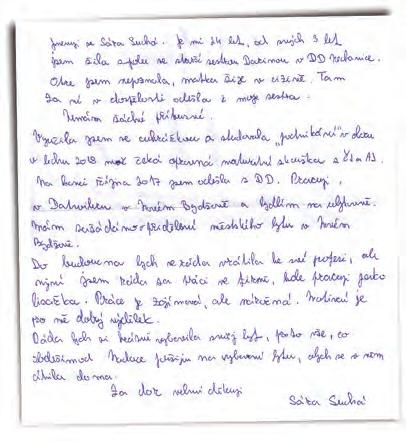 Jmenuji se Sára Suchá. Je mi 24 let, od svých 3 let
jsem žila spolu se starší sestrou Darinou v DD Nechanice.
Otce jsem nepoznala, matka žije v cizině. Tam
za ní v dospělosti odešla i moje sestra.
Nemám žádné příbuzné.
Vyučila jsem se cukrářkou a studovala „podnikání" v oboru
v lednu 2018 mě čeká opravná maturitní zkouška z ČJ a AJ.
Na konci října 2017 jsem odešla z DD. Pracuji
v Datwileru v Novém Bydžově a bydlím na ubytovně.
Mám zažádáno o přidělení městského bytu v Novém
Bydžově.
Do budoucna bych se ráda vrátila ke své profesi, ale
nyní jsem ráda za práci ve firmě, kde pracuji jako
lisařka. Práce je zajímavá, ale náročná. Nabízí je
pro mě dobrý výdělek.
Ráda bych si hezky vybavila svůj byt, proto vše, co
obdržím od Nadace použiji na vybavení bytu, abych se v něm
cítila doma.
Za dar velmi děkuji
Sára Suchá